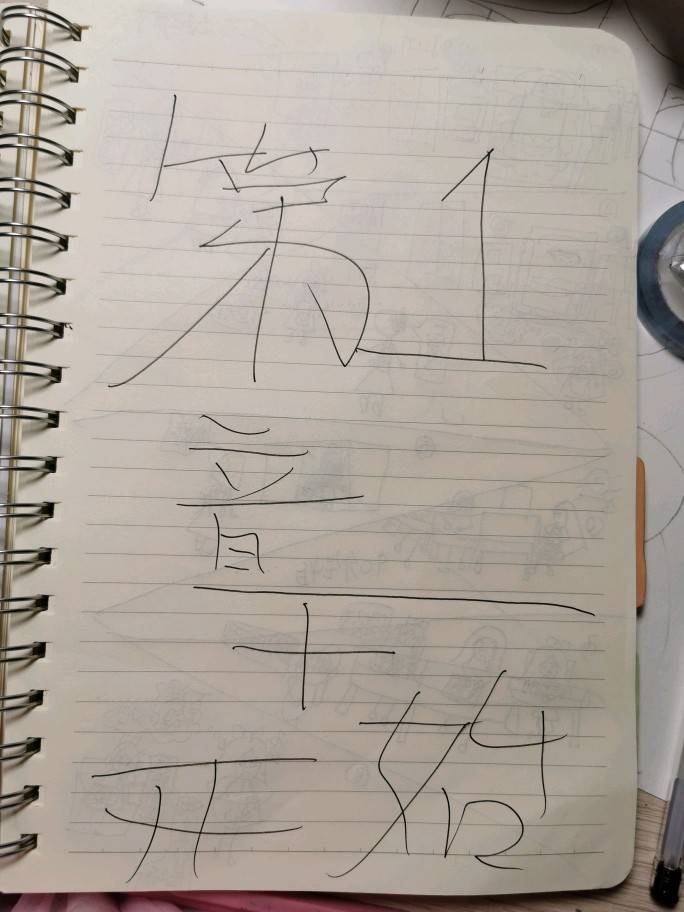 第1
章
开始